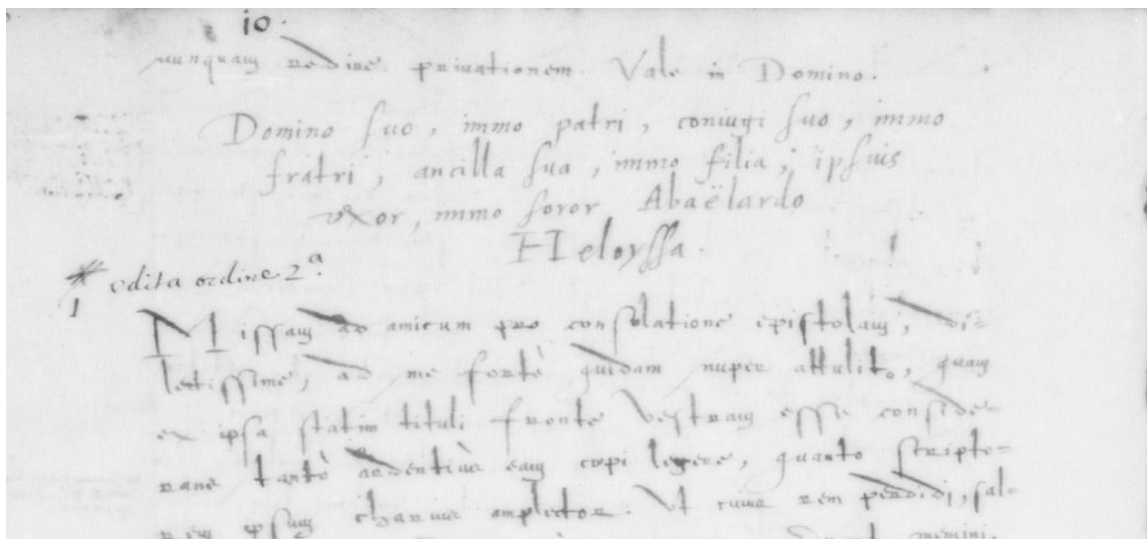 10.
nunquam redire privationem. Vale in Domino.
Domino suo, immo patri, coniugi suo, immo
fratri, ancilla sua, immo filia, ipsius
uxor, immo soror Abaëlardo
Heloyssa.
* edita ordine 2ª.
1
Missam ad amicum pro consolatione epistolam, di-
lectissime, ad me fortè quidam nuper attulit, quam
ex ipsa statim tituli fronte vestram esse conside-
rans tantò ardentiùs eam cœpi legere, quanto scripto-
rem ipsum charius amplector. Ut cuius rem perdidi, sal-
memini,